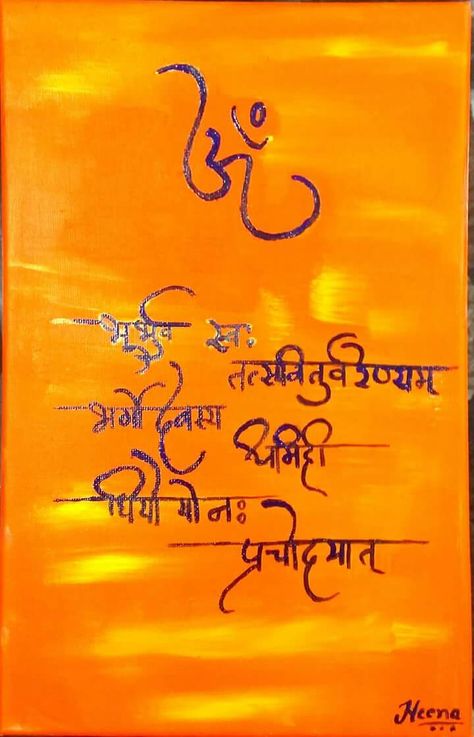 ॐ
भूर्भुव स्वः
तत्सवितुर्वरेण्यम
भर्गो देवस्य
धिमही
धियो यो नः
प्रचोदयात्
Heena